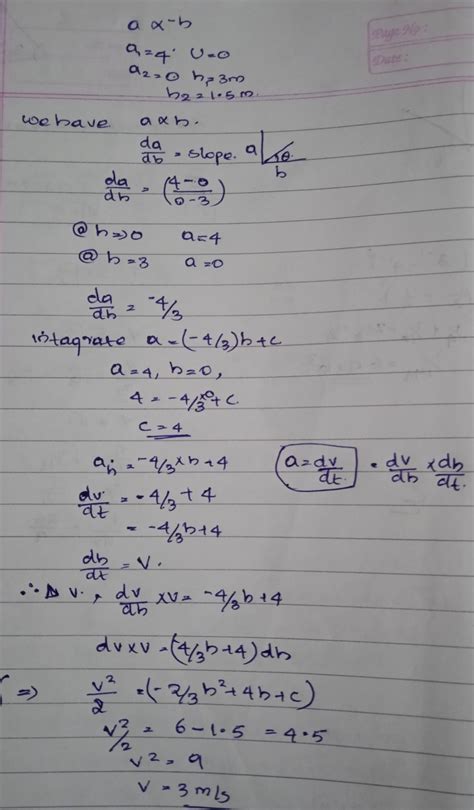 Page No :
Date :
a ∝ -h
a₁=4 U=0
a₂=0 h₁=3m
h₂=1.5m.
we have a∝h.
da/dh = slope. a θ h
da/dh = (4-0/0-3)
@ h=>0 a=4
@ h=3 a=0
da/dh = -4/3
intagrate a=(-4/3)h+c
a=4, h=0,
4 = -4/3×0+c.
c=4
aₕ=-4/3×h+4
a=dv/dt. = dv/dh × dh/dt.
dv/dt = -4/3+4
= -4/3h+4
dh/dt = V.
dv/dh ×v= -4/3h+4
dv×v=(-4/3h+4)dh
=> v²/2 =(-2/3h²+4h+c)
v²/2 = 6-1.5 = 4.5
v² = 9
v = 3 m/s